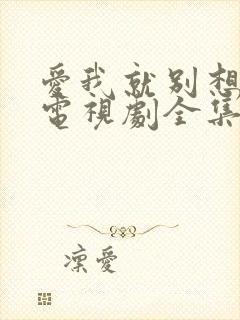 愛我就別想
電視劇全集
凜愛